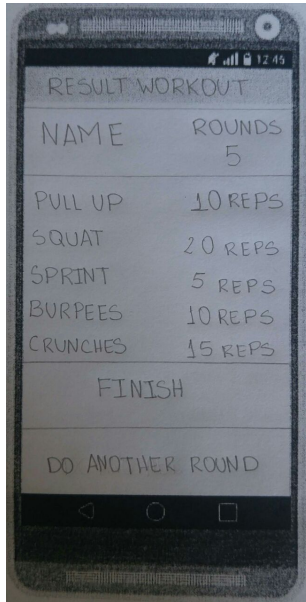 12 45
RESULT WORKOUT
NAME ROUNDS
5
PULL UP 10 REPS
SQUAT 20 REPS
SPRINT 5 REPS
BURPEES 10 REPS
CRUNCHES 15 REPS
FINISH
DO ANOTHER ROUND